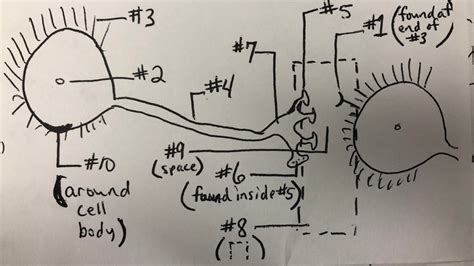 #3
#5
#1 (found at
end of
#3)
#7
#2
#4
#10
(around
cell
body)
#9
(space)
#6
(found inside #5)
#8
( )